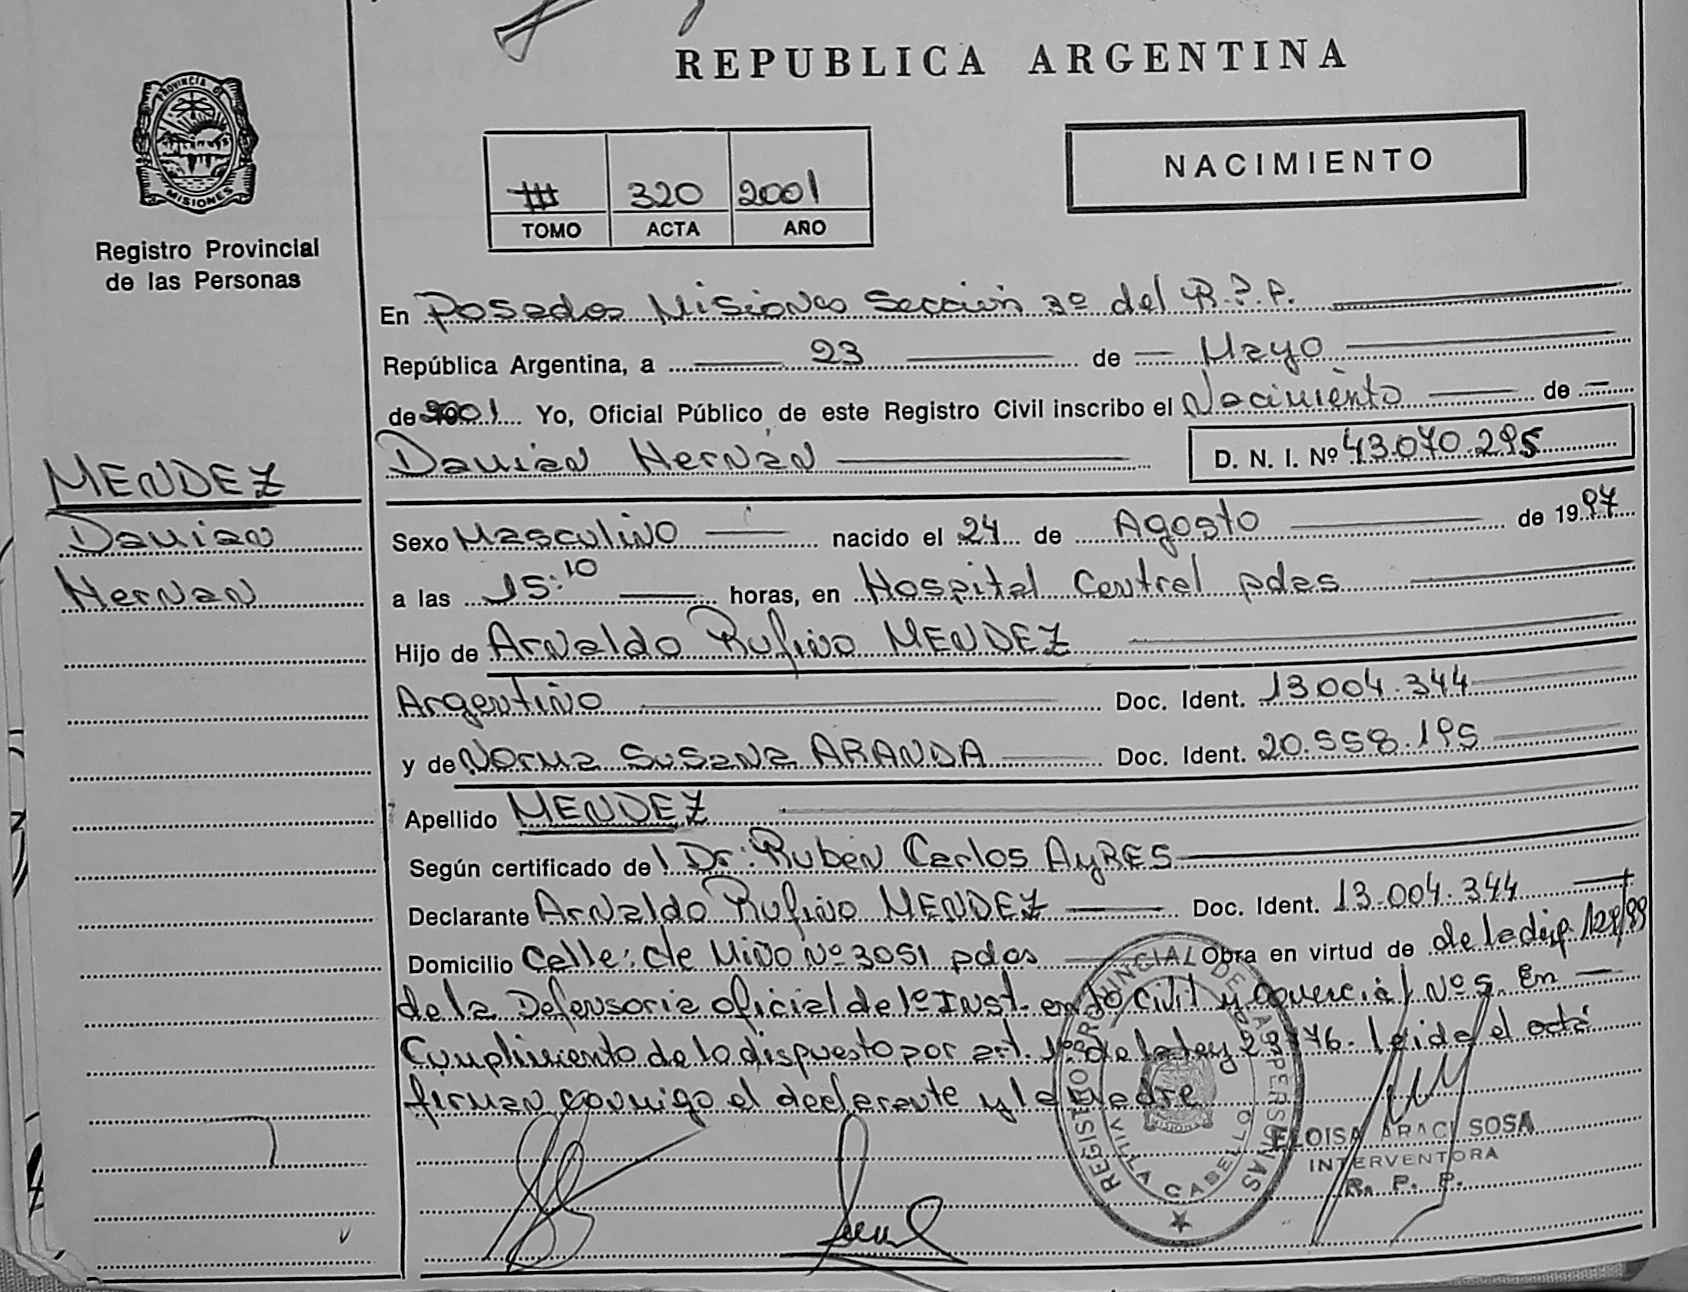 REPUBLICA ARGENTINA
PROVINCIA DE MISIONES
Registro Provincial
de las Personas
NACIMIENTO
III 320 2001
TOMO ACTA AÑO
En Posadas Misiones Sección 3º del R.P.P.
República Argentina, a 23 de Mayo
de 2001 Yo, Oficial Público de este Registro Civil inscribo el Nacimiento de
Damian Hernán D. N. I. Nº 43.070.295
MENDEZ
Damian
Hernan
Sexo Masculino nacido el 24 de Agosto de 1997
a las 15:10 horas, en Hospital Central pdas
Hijo de Arnaldo Rufino MENDEZ
Argentino Doc. Ident. 13.004.344
y de Norma Susana ARANDA Doc. Ident. 20.558.195
Apellido MENDEZ
Según certificado de l Dr: Ruben Carlos AyRES
Declarante Arnaldo Rufino MENDEZ Doc. Ident. 13.004.344
Domicilio Calle: de Miño Nº 3051 pdas Obra en virtud de de la disp. 128/99
de la Defensoria oficial de 1º Inst. en lo Civil y Comercial Nº 5. En
Cumplimiento de lo dispuesto por art. 1º de la Ley leida el acta
firman conmigo el declarante y la madre
REGISTRO PROVINCIAL DE LAS PERSONAS
VILLA CABELLO
ELOISA ARACI SOSA
INTERVENTORA
R. P. P.